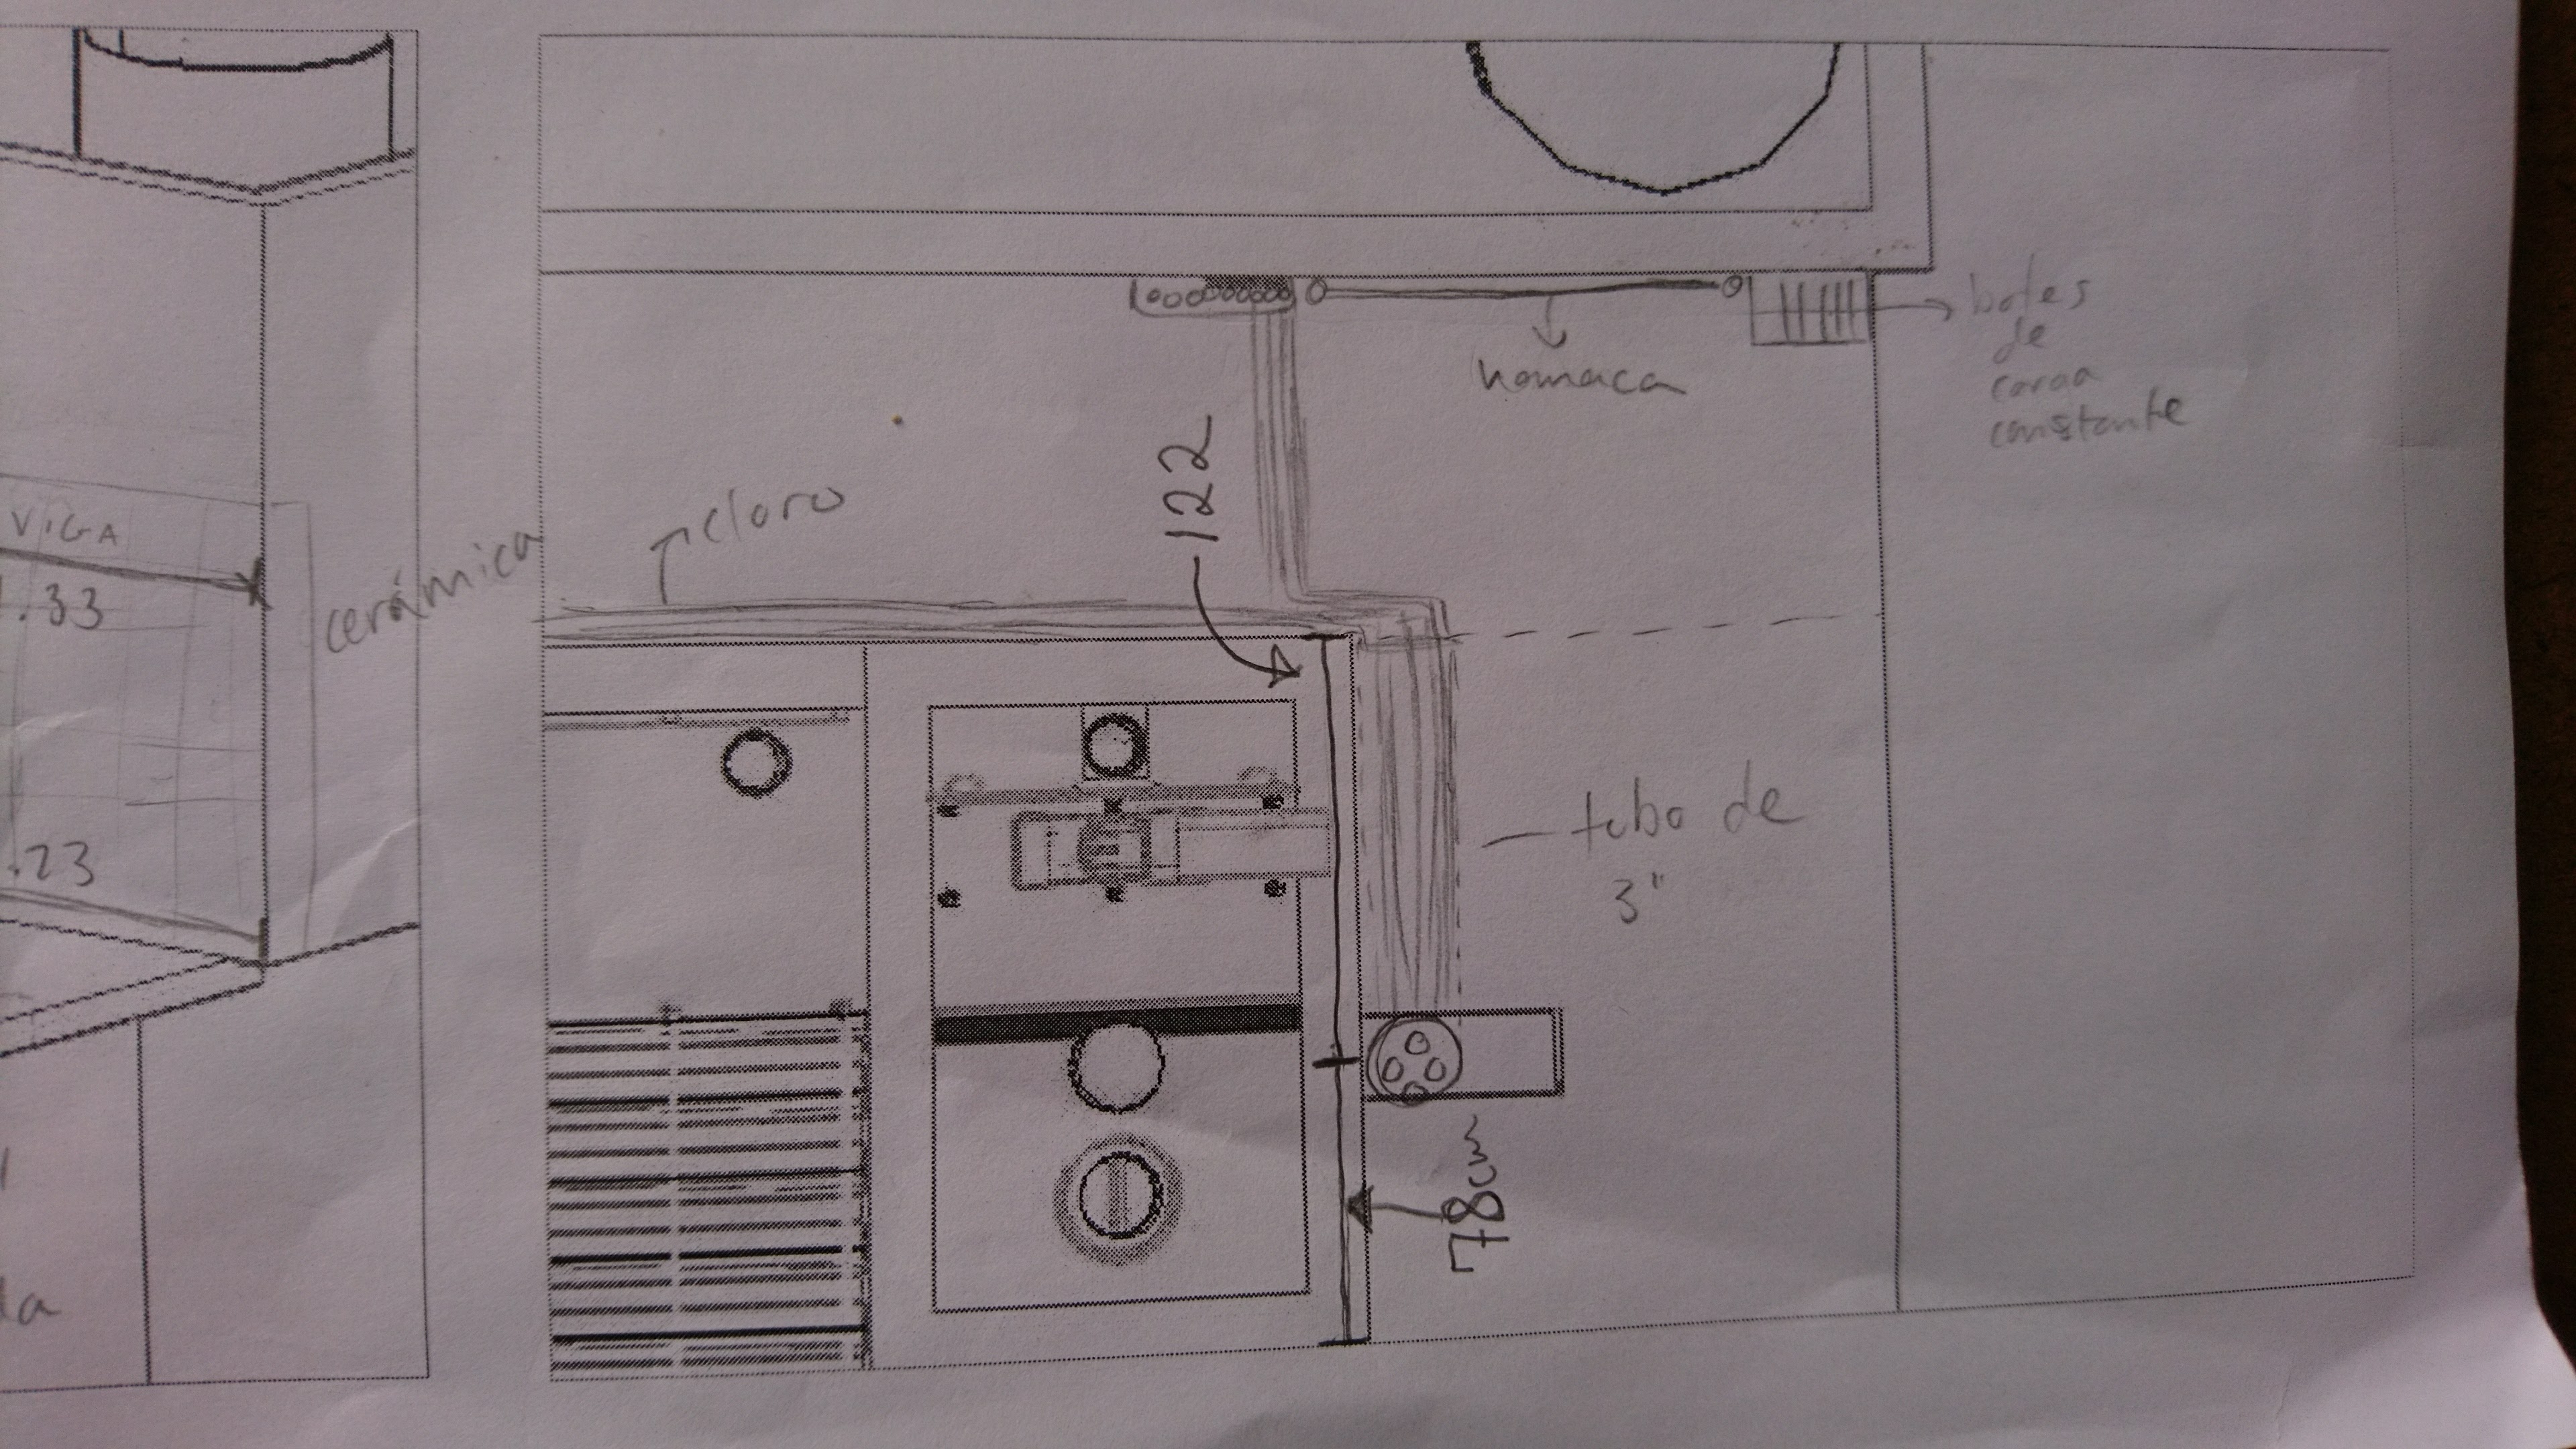 VIGA
1.33
cerámica
.23
la
cloro
122
hamaca
botes
de
carga
constante
tubo de
3"
78cm